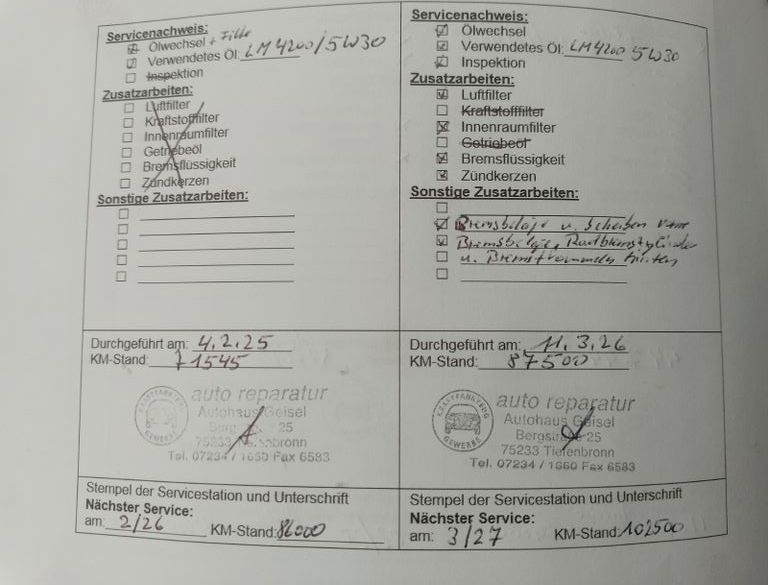 Servicenachweis:
Ölwechsel + Filter
Verwendetes Öl: LM4200/5W30
Inspektion
Zusatzarbeiten:
Luftfilter
Kraftstofffilter
Innenraumfilter
Getriebeöl
Bremsflüssigkeit
Zündkerzen
Sonstige Zusatzarbeiten:
Durchgeführt am: 4.2.25
KM-Stand: 71545
auto reparatur
Autohaus Geisel
Berg 25
75233 bronn
Tel. 07234 / 1660 Fax 6583
Stempel der Servicestation und Unterschrift
Nächster Service:
am: 2/26 KM-Stand: 86000
Servicenachweis:
Ölwechsel
Verwendetes Öl: LM4200 5W30
Inspektion
Zusatzarbeiten:
Luftfilter
Kraftstofffilter
Innenraumfilter
Getriebeöl
Bremsflüssigkeit
Zündkerzen
Sonstige Zusatzarbeiten:
Bremsbeläge u. Scheiben vorne
Bremsbeläge, Radbremszylinder
u. Bremstrommeln hinten
Durchgeführt am: 11.3.26
KM-Stand: 87500
KRAFTFAHRZEUG
GEWERBE
auto reparatur
Autohaus Geisel
Bergstraße 25
75233 Tiefenbronn
Tel. 07234 / 1660 Fax 6583
Stempel der Servicestation und Unterschrift
Nächster Service:
am: 3/27 KM-Stand: 102500